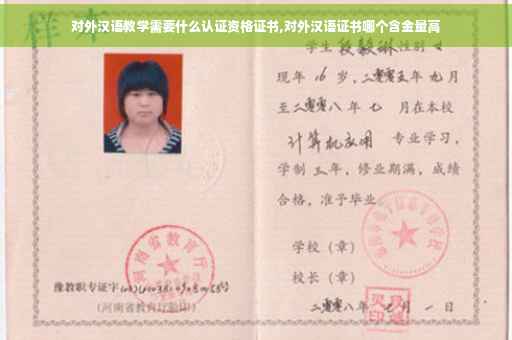 对外汉语教学需要什么认证资格证书,对外汉语证书哪个含金量高
样本
学生段毅琳性别女
现年16岁,二零零五年九月
至二零零八年七月在本校
计算机应用 专业学习,
学制三年,修业期满,成绩
合格,准予毕业
学校(章)
校长(章)
二零零八年七月一日
河南省教育厅
豫教职专证字
(河南省教育厅验印)